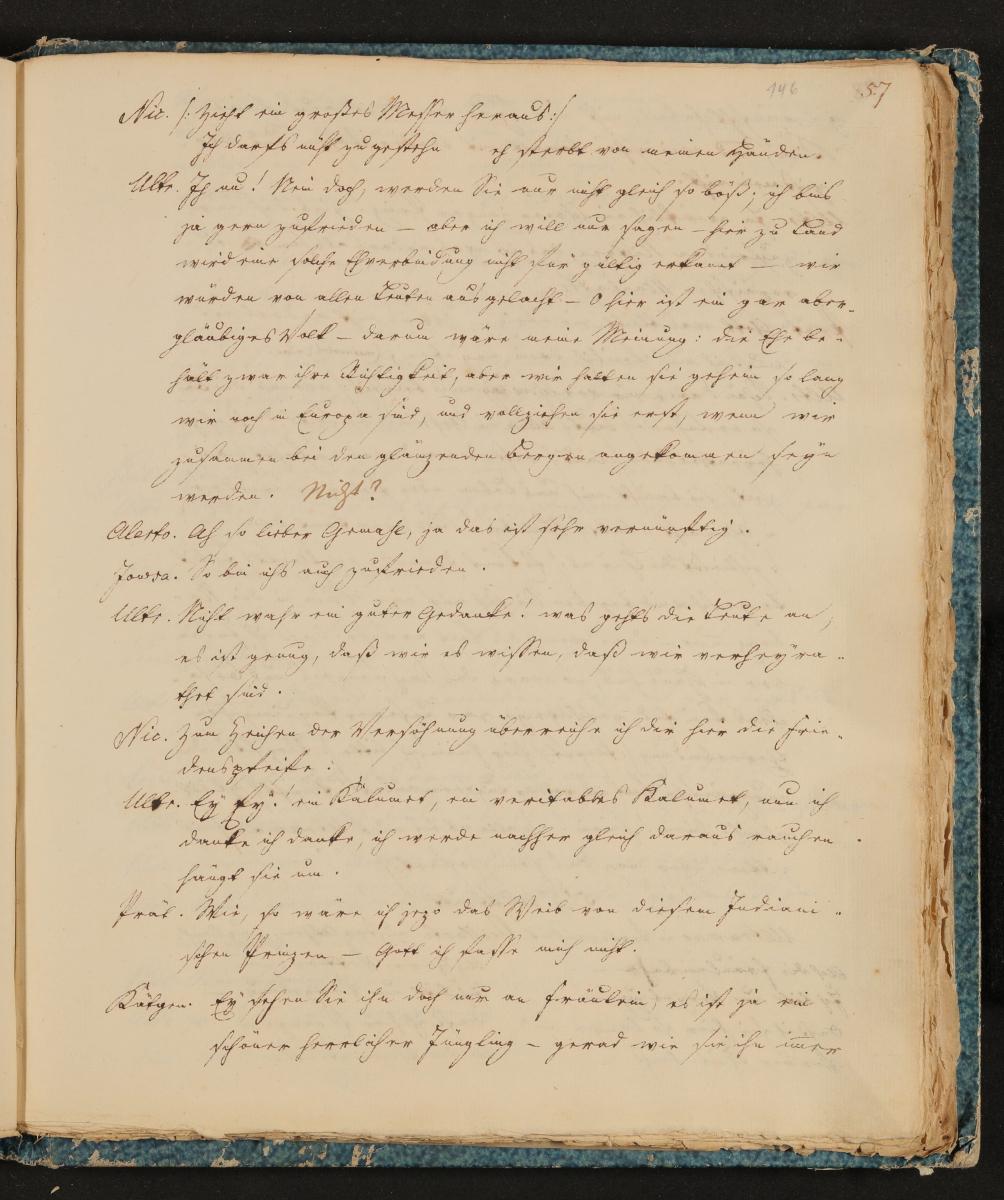 146 57
Nic. /: Zieht ein großes Messer heraus :/
Ich darfs nicht zugestehn eh sterbt von meinen Händen.
Ulke. Ih nu! Nein doch, werden Sie nur nicht gleich so böß; ich bins
ja gern zufrieden – aber ich will nur sagen – hier zu Land
wird eine solche Ehverbindung nicht für gültig erkannt – wir
würden von allen Leuten ausgelacht – O hier ist ein gar aber-
gläubiges Volk – darum wäre meine Meinung: die Ehe be-
hält zwar ihre Richtigkeit, aber wir halten sie geheim so lang
wir noch in Europa sind, und vollziehen sie erst, wenn wir
zusammen bei den glänzenden Bergen angekommen seyn
werden. Nicht?
Alecto. Ah so lieber Gemahl, ja das ist sehr vernünftig.
So bin ichs auch zufrieden.
Ulke. Nicht wahr ein guter Gedanke! was gehts die Leute an,
es ist genug, daß wir es wissen, daß wir verheyra-
thet sind.
Nic. Zum Zeichen der Versöhnung überreiche ich dir hier die Frie-
denspfeife:
Ulke. Ey Ey! ein Kalumet, ein veritables Kalumet, nun ich
danke ich danke, ich werde nachher gleich daraus rauchen.
hängt sie um.
Präs. Wie, so wäre ich jezo das Weib von diesem Indiani-
schen Prinzen – Gott ich fasse mich nicht.
Kätgen. Ey sehen Sie ihn doch nur an Fräulein, es ist ja ein
schöner herrlicher Jüngling – gerad wie sie ihn immer